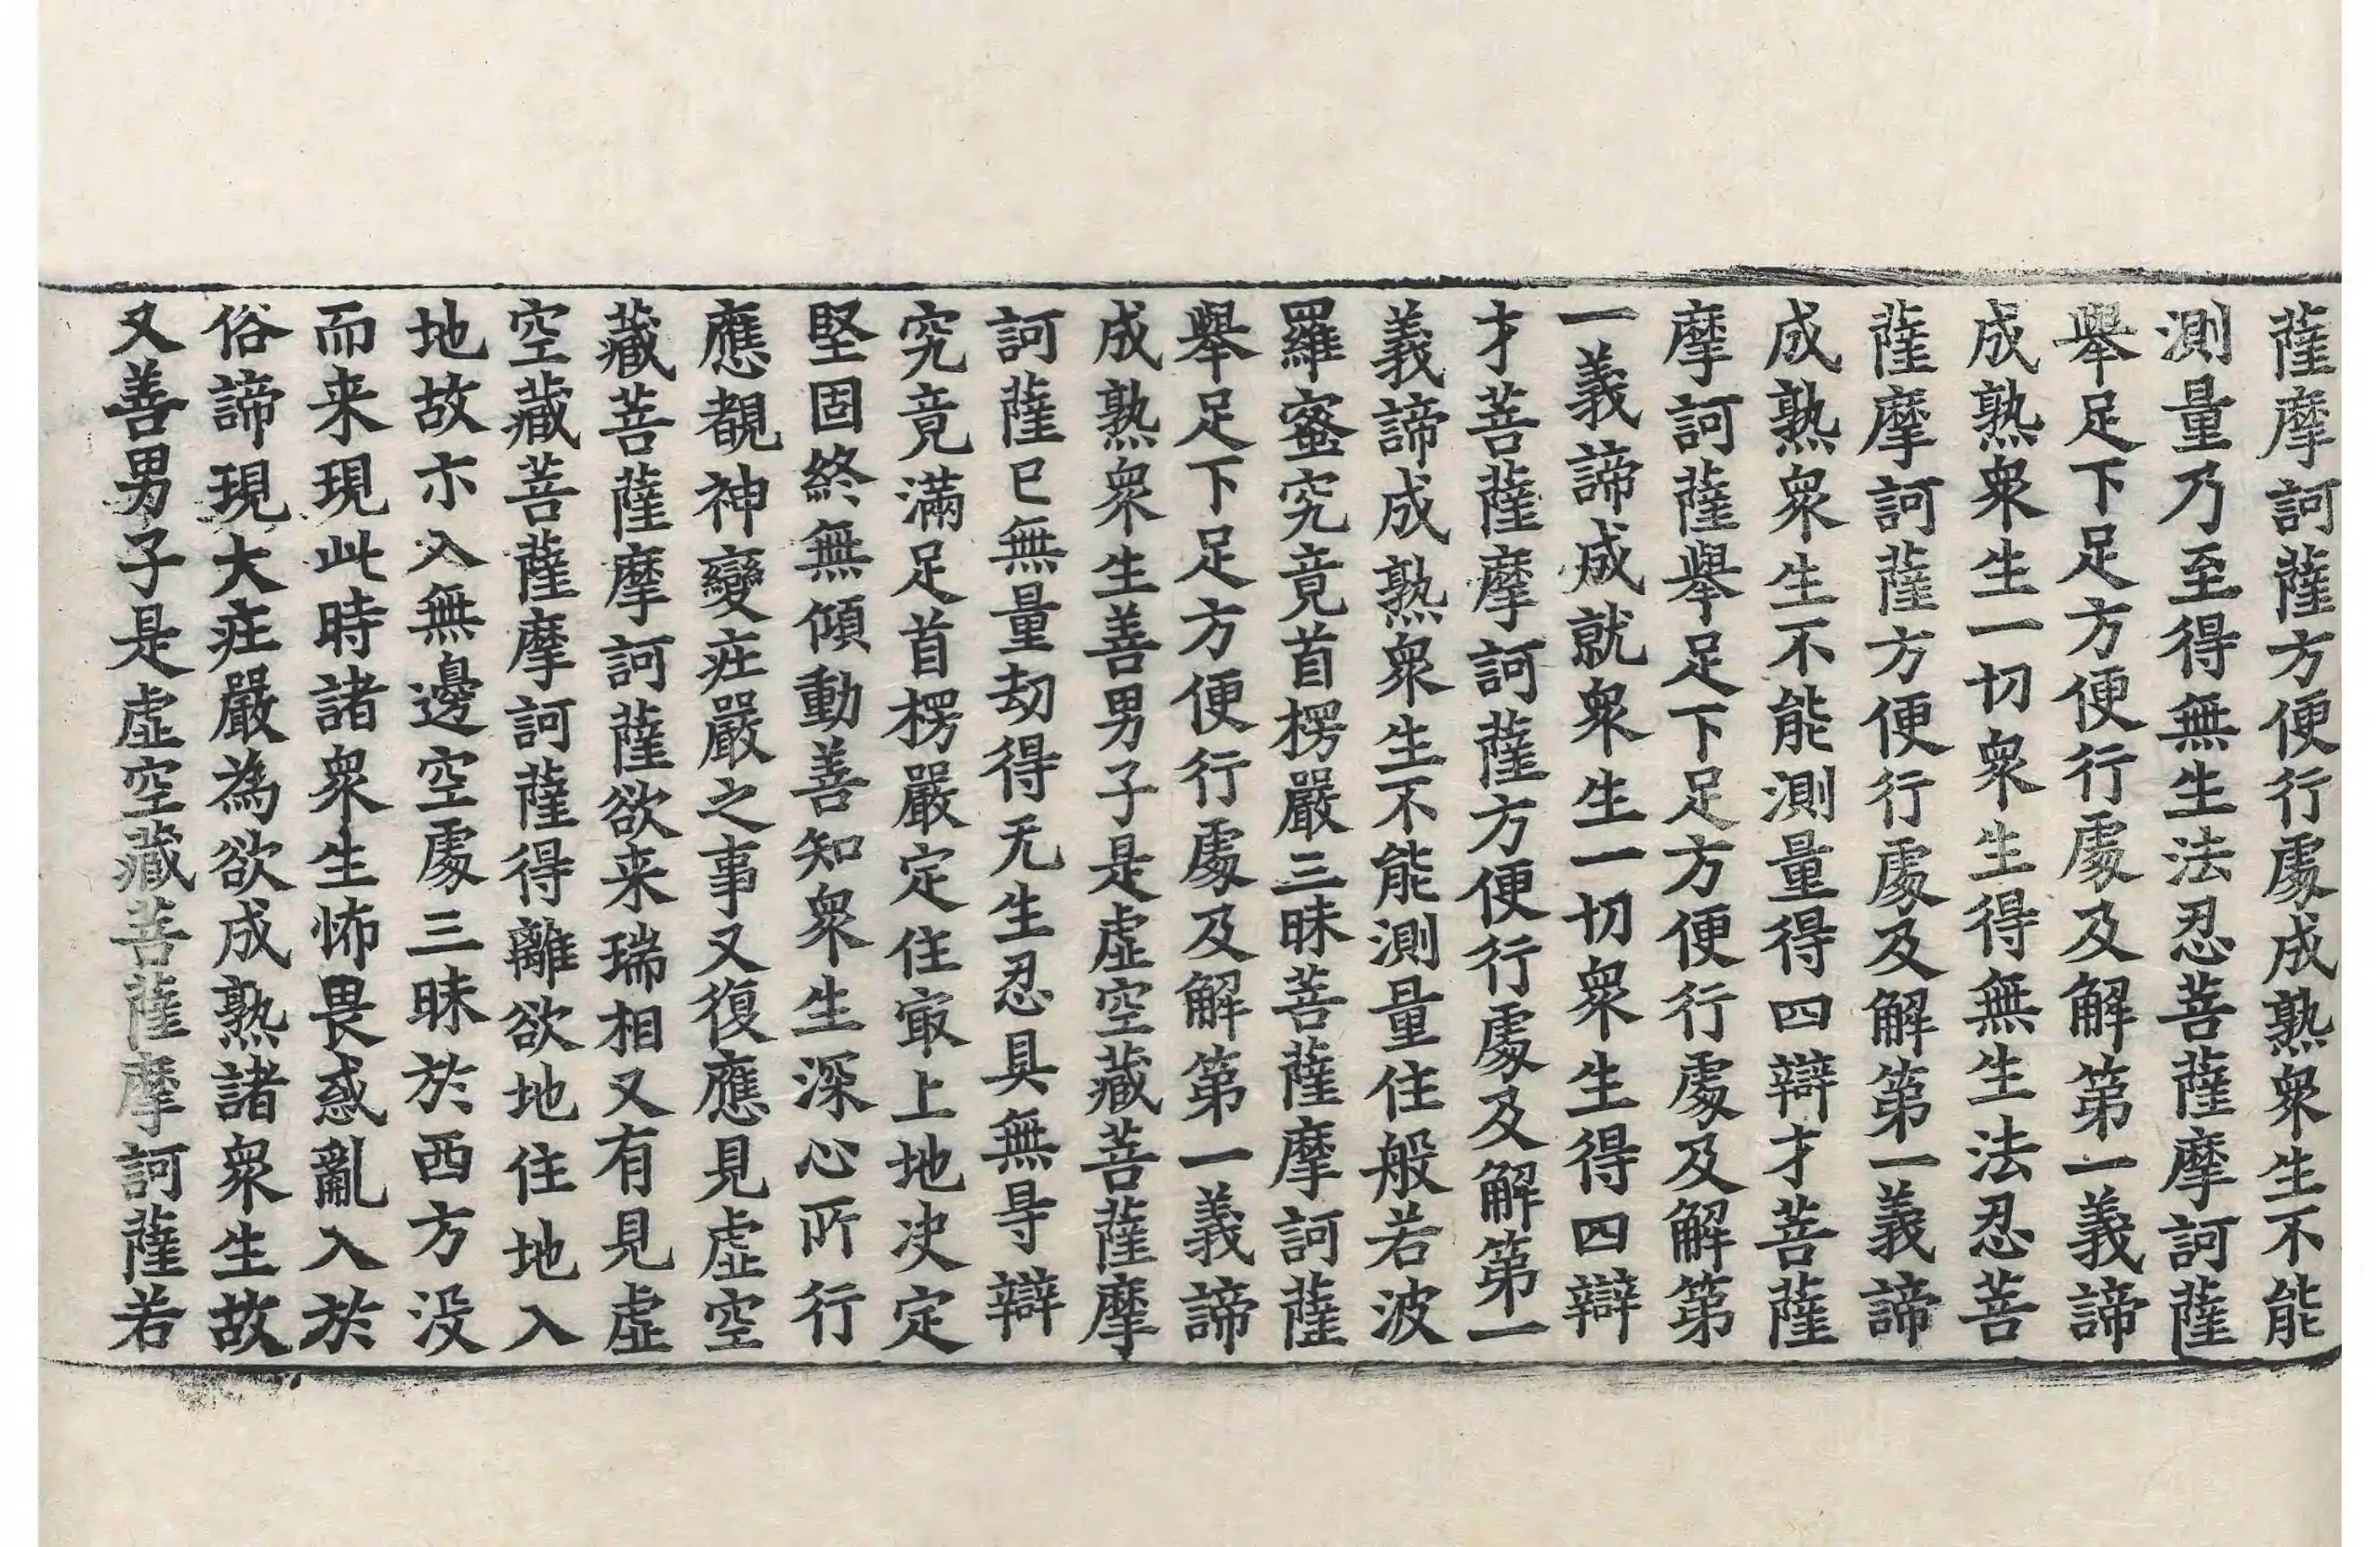 薩摩訶薩方便行䖏成熟衆生不能
測量乃至得無生法忍菩薩摩訶薩
舉足下足方便行䖏及解第一義諦
成熟衆生一切衆生得無生法忍菩
薩摩訶薩方便行䖏及解第一義諦
成熟衆生不能測量得四辯才菩薩
摩訶薩舉足下足方便行䖏及解第
一義諦成就衆生一切衆生得四辯
才菩薩摩訶薩方便行䖏及解第一
義諦成熟衆生不能測量住般若波
羅蜜究竟首楞嚴三昧菩薩摩訶薩
舉足下足方便行䖏及解第一義諦
成熟衆生善男子是虛空藏菩薩摩
訶薩已無量劫得无生忍具無㝵辯
究竟滿足首楞嚴定住㝡上地决定
堅固終無傾動善知衆生深心所行
應覩神變庄嚴之事又復應見虛空
藏菩薩摩訶薩欲来瑞相又有見虛
空藏菩薩摩訶薩得離欲地住地入
地故亦入無邊空䖏三昧於西方没
而来現此時諸衆生怖畏惑亂入於
俗諦現大庄嚴為欲成熟諸衆生故
又善男子是虛空藏菩薩摩訶薩若